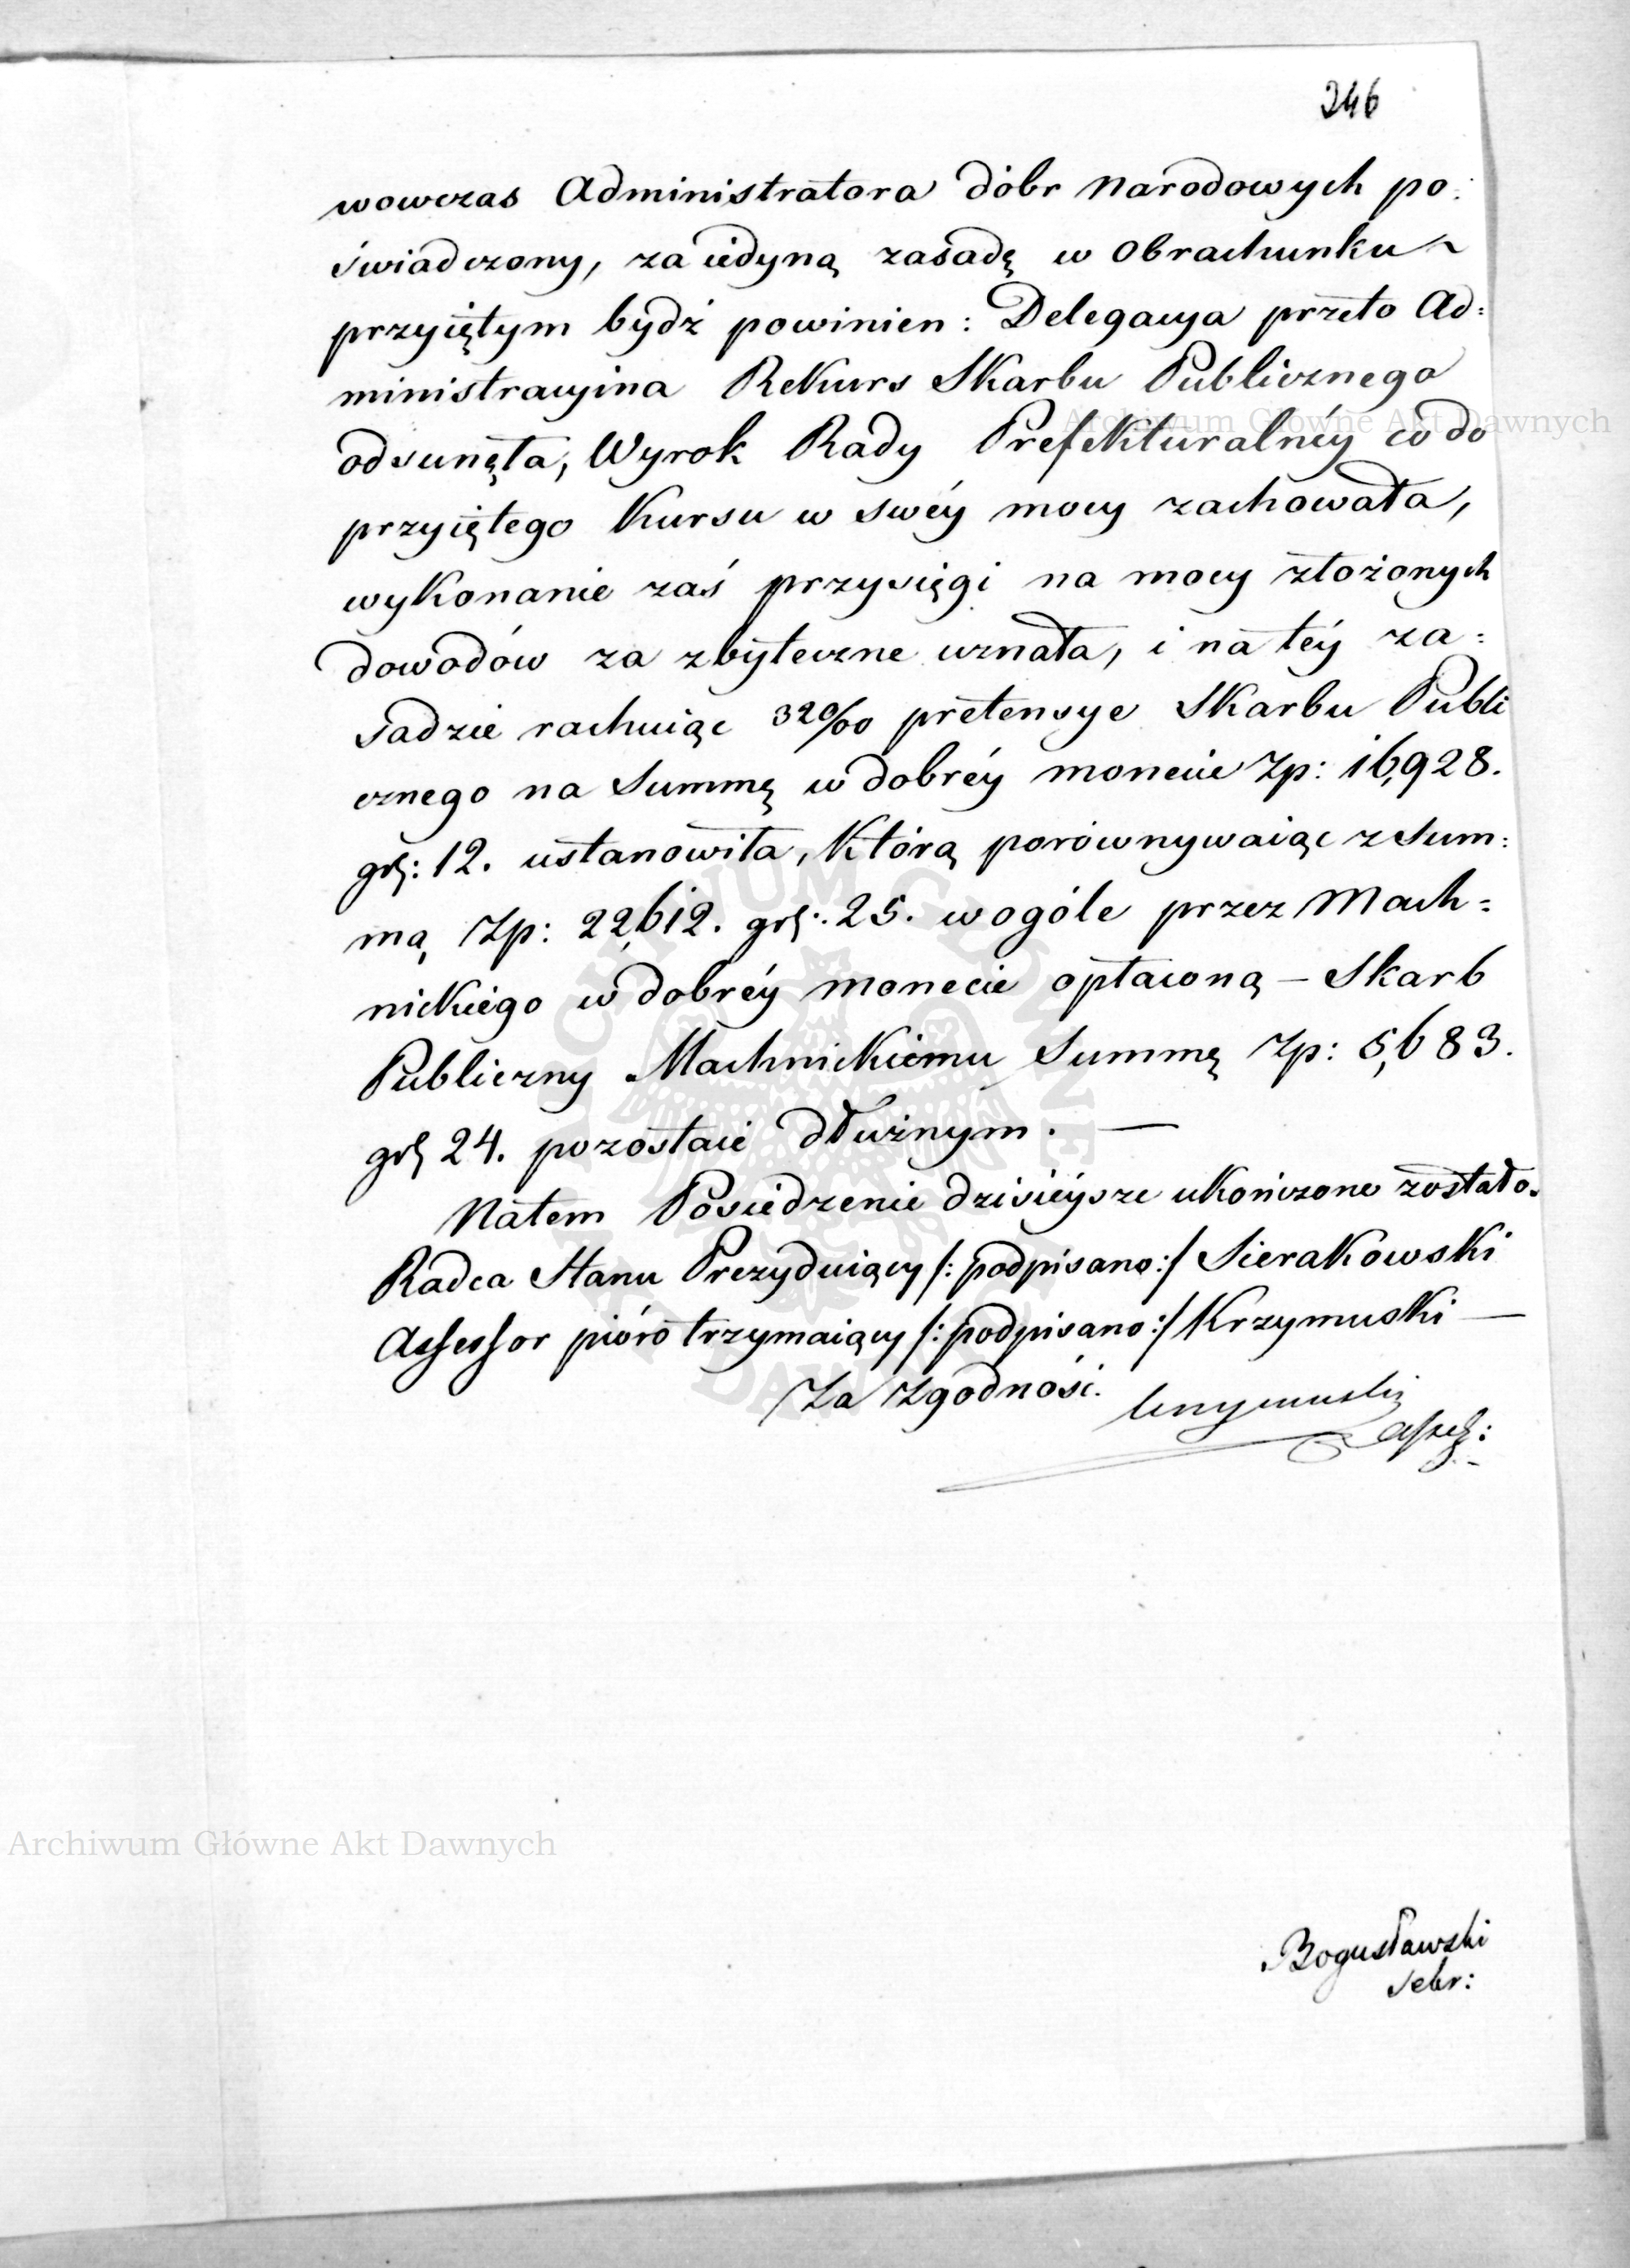 246
wowczas Administratora dóbr Narodowych po:
świadczony, za iedyną zasadę w Obrachunku ~
przyiętym bydź powinien: Delegacya przeto Ad:
ministracyina Rekurs Skarbu Publicznego
odsunęła, Wyrok Rady Prefekturalnéy co do
przyiętego Kursu w swéy mocy zachowała,
wykonanie zaś przysięgi na mocy złożonych
dowodów za zbyteczne uznała, i na téy za:
sadzie rachuiąc 320/00 pretensye Skarbu Publi
cznego na Summę w dobréy monecie Zp: 16,928.
gr: 12. ustanowiła, Którą porównywaiąc z Sum:
mą Zp: 22,612. gr: 25. wogóle przez Mach=
nickiego w dobréy monecie opłaconą – Skarb
Publiczny Machnickiemu Summę Zp: 5,683.
gr 24. pozostaie dłużnym. —
Natem Posiedzenie dzisieysze ukończone zostało.
Radca Stanu Prezyduiący /: podpisano :/ Sierakowski
Assessor pióro trzymaiący /: podpisano :/ Krzymuski —
Za Zgodność. Krzymuski
Assess:
Bogusławski
Sekr:
Archiwum Główne Akt Dawnych
Archiwum Główne Akt Dawnych
ARCHIWUM GŁÓWNE AKT DAWNYCH